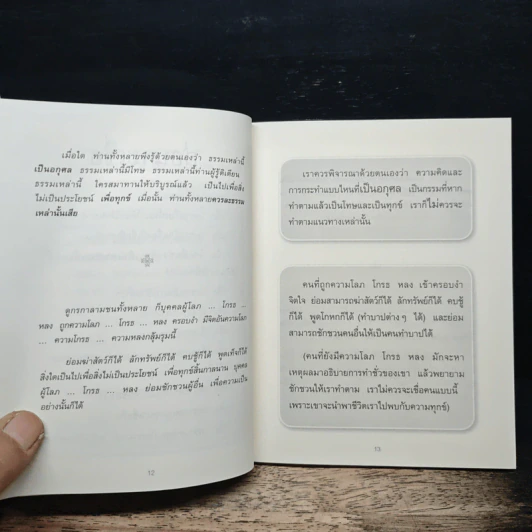 เมื่อใด ท่านทั้งหลายพึงรู้ด้วยตนเองว่า ธรรมเหล่านี้
เป็นอกุศล ธรรมเหล่านี้มีโทษ ธรรมเหล่านี้ท่านผู้รู้ติเตียน
ธรรมเหล่านี้ ใครสมาทานให้บริบูรณ์แล้ว เป็นไปเพื่อสิ่ง
ไม่เป็นประโยชน์ เพื่อทุกข์ เมื่อนั้น ท่านทั้งหลายควรละธรรม
เหล่านั้นเสีย
ดูกรกาลามชนทั้งหลาย ก็บุคคลผู้โลภ ... โกรธ ...
หลง ถูกความโลภ ... โกรธ ... หลง ครอบงำ มีจิตอันความโลภ
... ความโกรธ ... ความหลงกลุ้มรุมนี้
ย่อมฆ่าสัตว์ก็ได้ ลักทรัพย์ก็ได้ คบชู้ก็ได้ พูดเท็จก็ได้
สิ่งใดเป็นไปเพื่อสิ่งไม่เป็นประโยชน์ เพื่อทุกข์สิ้นกาลนาน บุคคล
ผู้โลภ ... โกรธ ... หลง ย่อมชักชวนผู้อื่น เพื่อความเป็น
อย่างนั้นก็ได้
12
เราควรพิจารณาด้วยตนเองว่า ความคิดและ
การกระทำแบบไหนที่เป็นอกุศล เป็นกรรมที่หาก
ทำตามแล้วเป็นโทษและเป็นทุกข์ เราก็ไม่ควรจะ
ทำตามแนวทางเหล่านั้น
คนที่ถูกความโลภ โกรธ หลง เข้าครอบงำ
จิตใจ ย่อมสามารถฆ่าสัตว์ก็ได้ ลักทรัพย์ก็ได้ คบชู้
ก็ได้ พูดโกหกก็ได้ (ทำบาปต่างๆ ได้) และย่อม
สามารถชักชวนคนอื่นให้เป็นคนทำบาปได้
(คนที่ยังมีความโลภ โกรธ หลง มักจะหา
เหตุผลมาอธิบายการทำชั่วของเขา แล้วพยายาม
ชักชวนให้เราทำตาม เราไม่ควรจะเชื่อคนแบบนี้
เพราะเขาจะนำพาชีวิตเราไปพบกับความทุกข์)
13